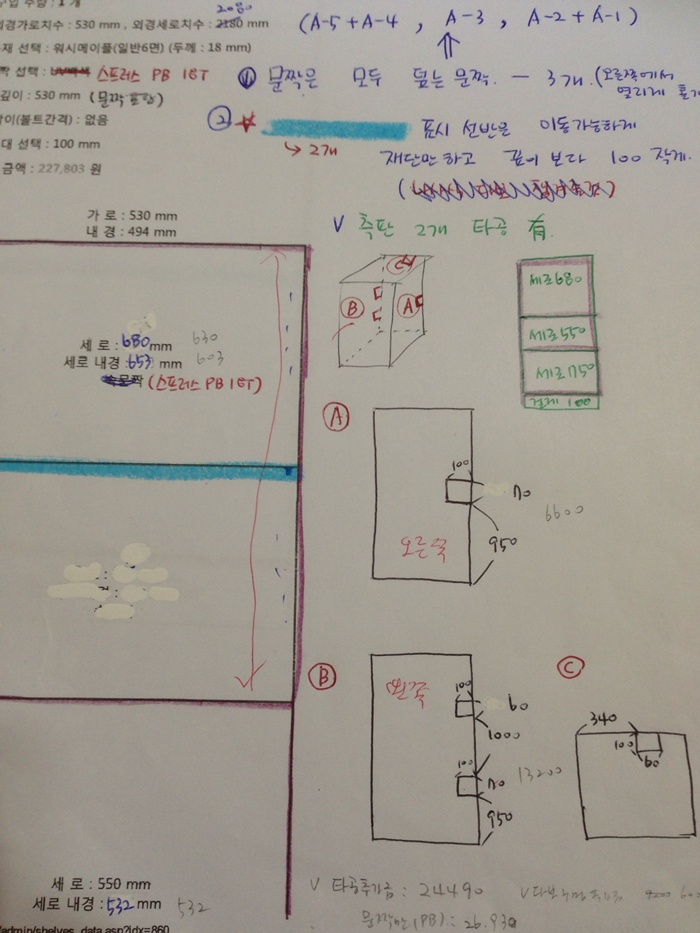 구입 수량 : 1 개
2080
외경가로치수 : 530 mm , 외경세로치수 : 2180 mm
(A-5 + A-4 , A-3 , A-2 + A-1)
재 선택 : 워시메이플(일반6면) (두께 : 18 mm)
짝 선택 : 스프러스 PB 1ET
① 문짝은 모두 덮는 문짝. — 3개. (오른쪽에서
열리게
깊이 : 530 mm (문짝 포함)
이(볼트간격) : 없음
② ☆ 표시 선반은 이동가능하게
→ 2개
대 선택 : 100 mm
재단만 하고 깊이 보다 100 작게.
금액 : 227,803 원
가 로 : 530 mm
내 경 : 494 mm
V 측판 2개 타공 有.
C
B
A
세로680
세로550
세로750
걸레 100
세 로 : 680 mm 630
세로 내경 : 653 mm 603
(스프러스 PB 1ET)
A
100
170
6600
950
오른쪽
B
왼쪽
100
60
1000
100
170
13200
950
C
340
100
60
세 로 : 550 mm
세로 내경 : 532 mm 532
V 타공추가금 : 24490
문짝만 (PB) : 26.930
/admin/shelves_data.asp?idx=860